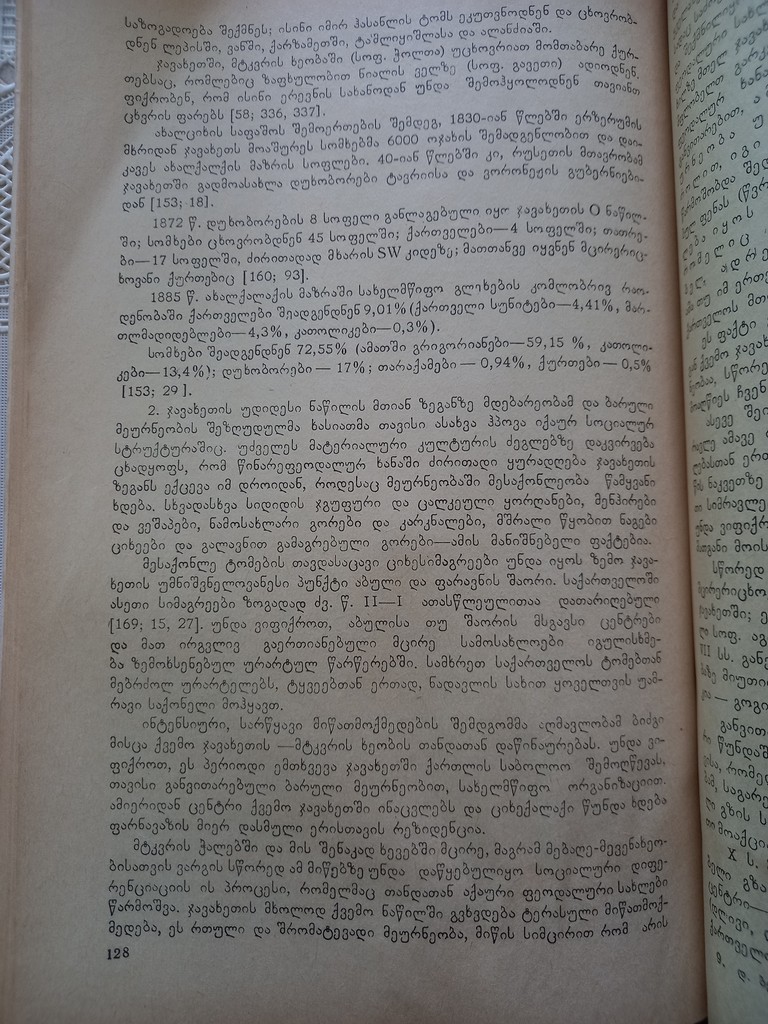 საზოგადოება შექმნეს; ისინი იმირ ჰასანლის ტომს ეკუთვნოდნენ და ცხოვრობ-
დნენ ლეპისში, ვანში, ქარზამეთში, ტამლიყიშლასა და ალანძიაში.
ჯავახეთში, მტკვრის ხეობაში (სოფ. ჭოლთა) უცხოვრიათ მომთაბარე ქურ-
თებსაც, რომლებიც ზაფხულობით ნიალის ველზე (სოფ. გავეთი) ადიოდნენ.
ფიქრობენ, რომ ისინი ერევნის სახანოდან უნდა შემოჰყოლოდნენ თავიანთ
ცხვრის ფარებს [58; 336, 337].
ახალციხის საფაშოს შემოერთების შემდეგ, 1830-იან წლებში ერზერუმის
მხრიდან ჯავახეთს მოაშურეს სომხებმა 6000 ოჯახის შემადგენლობით და დაი-
კავეს ახალქალაქის მაზრის სოფლები. 40-იან წლებში კი, რუსეთის მთავრობამ
ჯავახეთში გადმოასახლა დუხობორები ტავრიისა და ვორონეჟის გუბერნიები-
დან [153; 18].
1872 წ. დუხობორების 8 სოფელი განლაგებული იყო ჯავახეთის O ნაწილ-
ში; სომხები ცხოვრობდნენ 45 სოფელში; ქართველები—4 სოფელში; თათრე-
ბი—17 სოფელში, ძირითადად მხარის SW კიდეზე; მათთანვე იყვნენ მცირერიც-
ხოვანი ქურთებიც [160; 93].
1885 წ. ახალქალაქის მაზრაში სახელმწიფო გლეხების კომლობრივ რაო-
დენობაში ქართველები შეადგენდნენ 9,01% (ქართველი სუნიტები—4,41%, მარ-
თლმადიდებლები—4,3%, კათოლიკები—0,3%).
სომხები შეადგენდნენ 72,55% (ამათში გრიგორიანები—59,15 %, კათოლი-
კები—13,4%); დუხობორები — 17%; თარაქამები — 0,94%, ქურთები — 0,5%
[153; 29].
2. ჯავახეთის უდიდესი ნაწილის მთიან ზეგანზე მდებარეობამ და ბარული
მეურნეობის შეზღუდულმა ხასიათმა თავისი ასახვა ჰპოვა იქაურ სოციალურ
სტრუქტურაშიც. უძველეს მატერიალური კულტურის ძეგლებზე დაკვირვება
ცხადყოფს, რომ წინარეფეოდალურ ხანაში ძირითადი ყურადღება ჯავახეთის
ზეგანს ექცევა იმ დროიდან, როდესაც მეურნეობაში მესაქონლეობა წამყვანი
ხდება. სხვადასხვა სიდიდის ჯგუფური და ცალკეული ყორღანები, მენჰირები
და ვეშაპები, ნამოსახლარი გორები და კარკნალები, მშრალი წყობით ნაგები
ციხეები და გალავნით გამაგრებული გორები—ამის მანიშნებელი ფაქტებია.
მესაქონლე ტომების თავდასაცავი ციხესიმაგრეები უნდა იყოს ზემო ჯავა-
ხეთის უმნიშვნელოვანესი პუნქტი აბული და ფარავნის შაორი. საქართველოში
ასეთი სიმაგრეები ზოგადად ძვ. წ. II—I ათასწლეულითაა დათარიღებული
[169; 15, 27]. უნდა ვიფიქროთ, აბულისა თუ შაორის მსგავსი ცენტრები
და მათ ირგვლივ გაერთიანებული მცირე სამოსახლოები იგულისხმე-
ბა ზემოხსენებულ ურარტულ წარწერებში. სამხრეთ საქართველოს ტომებთან
მებრძოლ ურარტელებს, ტყვეებთან ერთად, ნადავლის სახით ყოველთვის უამ-
რავი საქონელი მოჰყავთ.
ინტენსიური, სარწყავი მიწათმოქმედების შემდგომმა აღმავლობამ ბიძგი
მისცა ქვემო ჯავახეთის —მტკვრის ხეობის თანდათან დაწინაურებას. უნდა ვი-
ფიქროთ, ეს პერიოდი ემთხვევა ჯავახეთში ქართლის საბოლოო შემოღწევას,
თავისი განვითარებული ბარული მეურნეობით, სახელმწიფო ორგანიზაციით.
ამიერიდან ცენტრი ქვემო ჯავახეთში ინაცვლებს და ციხექალაქი წუნდა ხდება
ფარნავაზის მიერ დასმული ერისთავის რეზიდენცია.
მტკვრის ჭალებში და მის შენაკად ხევებში მცირე, მაგრამ მებაღე-მევენახეო-
ბისათვის ვარგის სწორედ ამ მიწებზე უნდა დაწყებულიყო სოციალური დიფე-
რენციაციის ის პროცესი, რომელმაც თანდათან აქაური ფეოდალური სახლები
წარმოშვა. ჯავახეთის მხოლოდ ქვემო ნაწილში გვხვდება ტერასული მიწათმოქ-
მედება, ეს რთული და შრომატევადი მეურნეობა, მიწის სიმცირით რომ არის
128